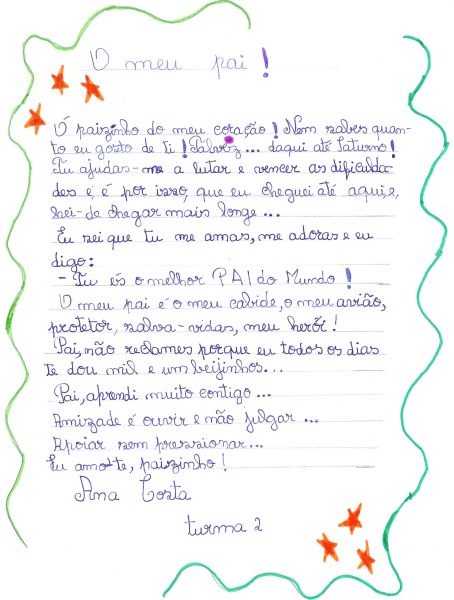 O meu pai!
Ó paizinho do meu coração! Nem sabes quan-
to eu gosto de ti! Talvez... daqui até Saturno!
Tu ajudas-me a lutar e vencer as dificulda-
des e, é por isso, que eu cheguei até aqui, e,
hei-de chegar mais longe...
Eu sei que tu me amas, me adoras e eu
digo:
- Tu és o melhor PAI do Mundo!
O meu pai é o meu cabide, o meu avião,
protetor, salva-vidas, meu herói!
Pai, não reclames porque eu todos os dias
te dou mil e um beijinhos...
Pai, aprendi muito contigo...
Amizade é ouvir e não julgar...
Apoiar sem pressionar...
Eu amo-te, paizinho!
Ana Costa
turma 2